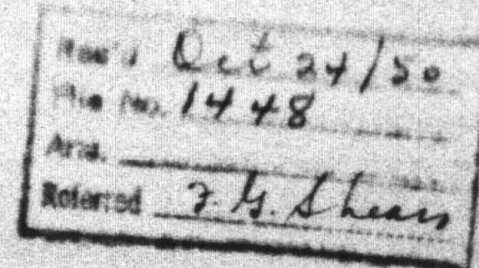 Rec'd Oct 24/50
File No. 1448
Ans.
Referred F. G. Shears